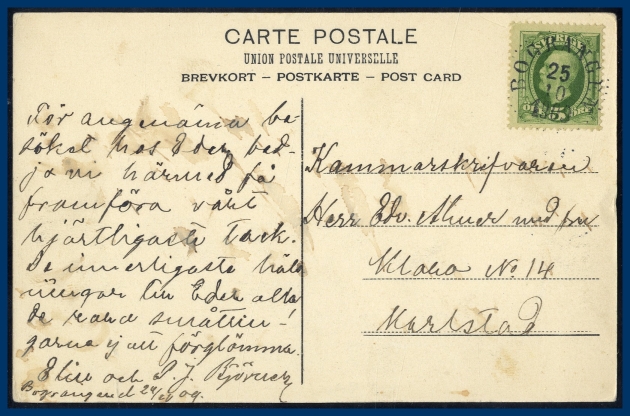 CARTE POSTALE
UNION POSTALE UNIVERSELLE
BREVKORT – POSTKARTE – POST CARD
SVERIGE
BORGÅNGEN
25
10
För angenäma be-
söket hos Eder bed-
ja vi härmed få
framföra vårt
hjärtligaste tack.
De innerligaste häls
ningar till Eder alla
de rara småttin-
garne ej att förglömma.
Elise och S. J. Björner
Kammarskrifvaren
Herr Edv. Almer med fru
Klara No 14
Karlstad